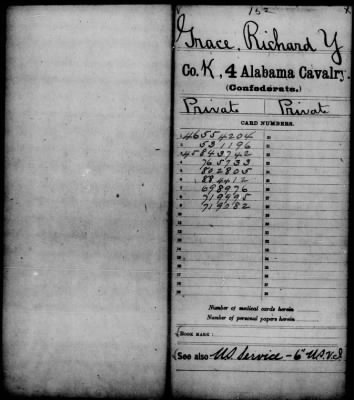 152
Grace, Richard Y
Co. K, 4 Alabama Cavalry.
(Confederate.)
Private Private
CARD NUMBERS.
1 46554204
2 531196
3 45843742
4 765733
5 802805
6 884412
7 698976
8 719995
9 719282
Number of medical cards herein
Number of personal papers herein
BOOK MARK:
See also U.S. Service - 6" U.S.V.I